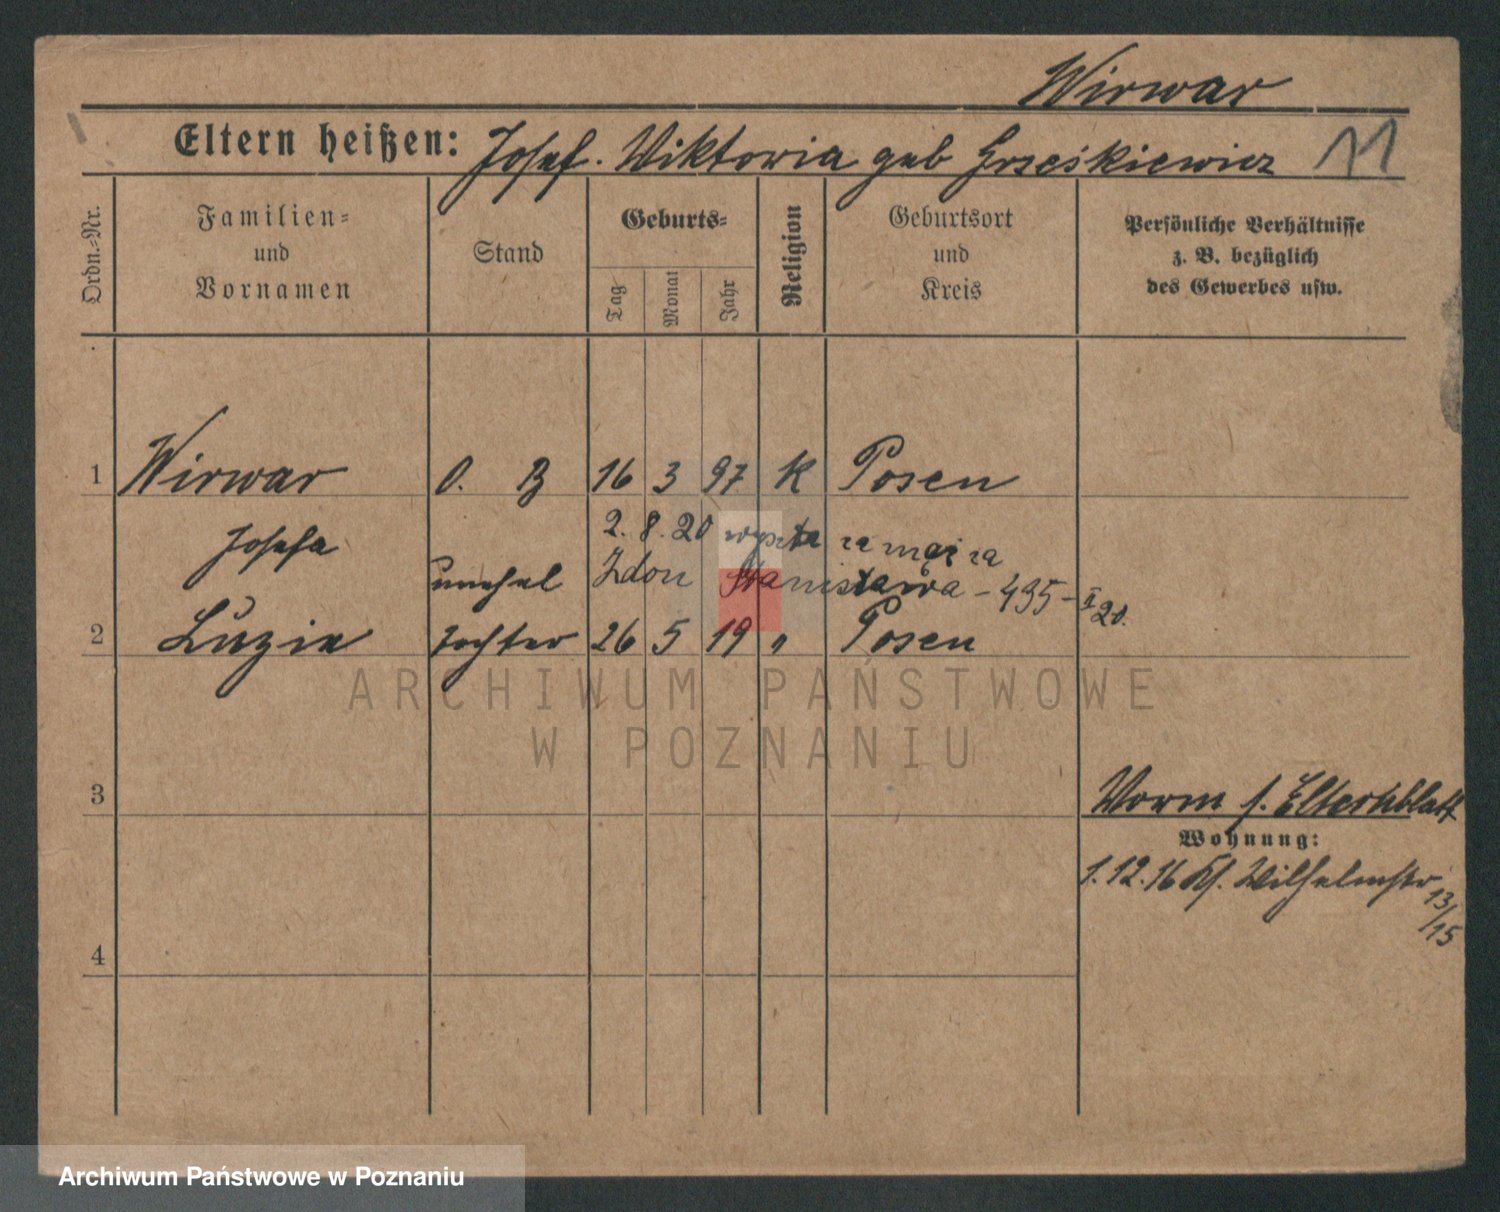 Wirwar
Eltern heißen: Josef. Viktoria geb Grześkiewicz 11
Ordn.-Nr.
Familien- und Vornamen
Stand
Geburts-
Tag
Monat
Jahr
Religion
Geburtsort und Kreis
Persönliche Verhältnisse z. B. bezüglich des Gewerbes usw.
1 Wirwar O. B 16 3 97 K Posen
Josefa
2. 8. 20 wyszła za mąż za
unehel Zdon Stanisława - 495 - II 20.
2 Luzie Tochter 26 5 19 " Posen
ARCHIWUM PAŃSTWOWE
W POZNANIU
3
Vorm s. Elternblatt
Wohnung:
1. 12. 16 Kl. Wilhelmstr 13/15
4
Archiwum Państwowe w Poznaniu